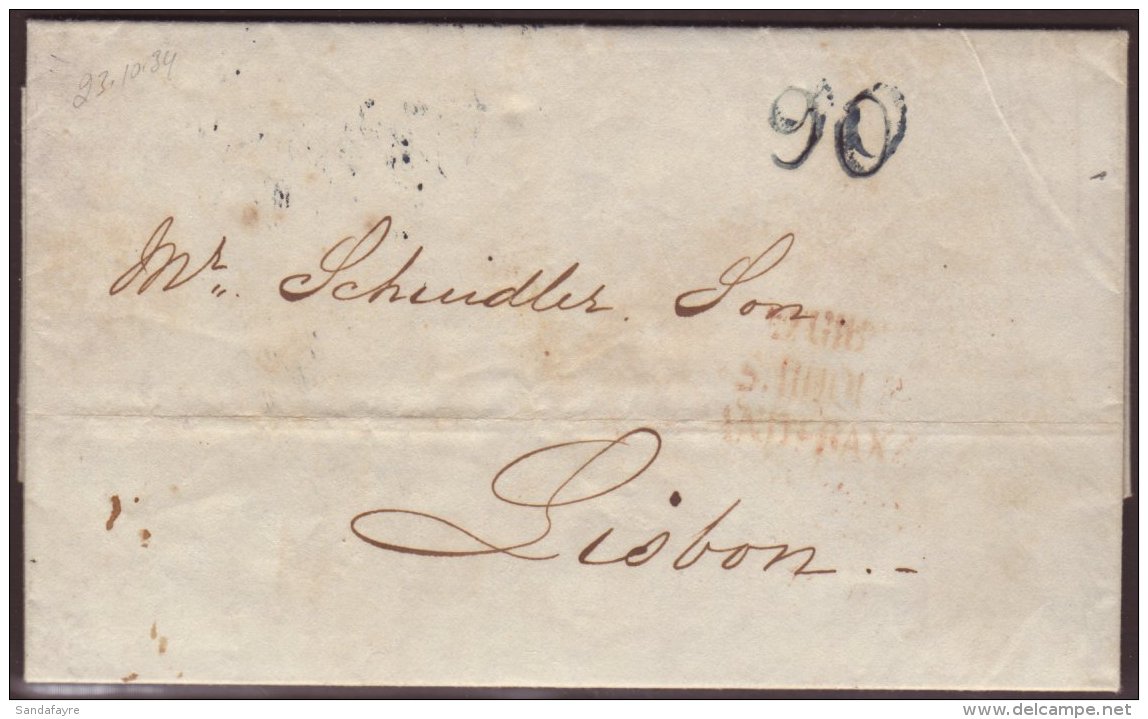 23.10.34
90
Mr. Schindler Son.
Lisbon.-
Sandafayre
delcampe.net